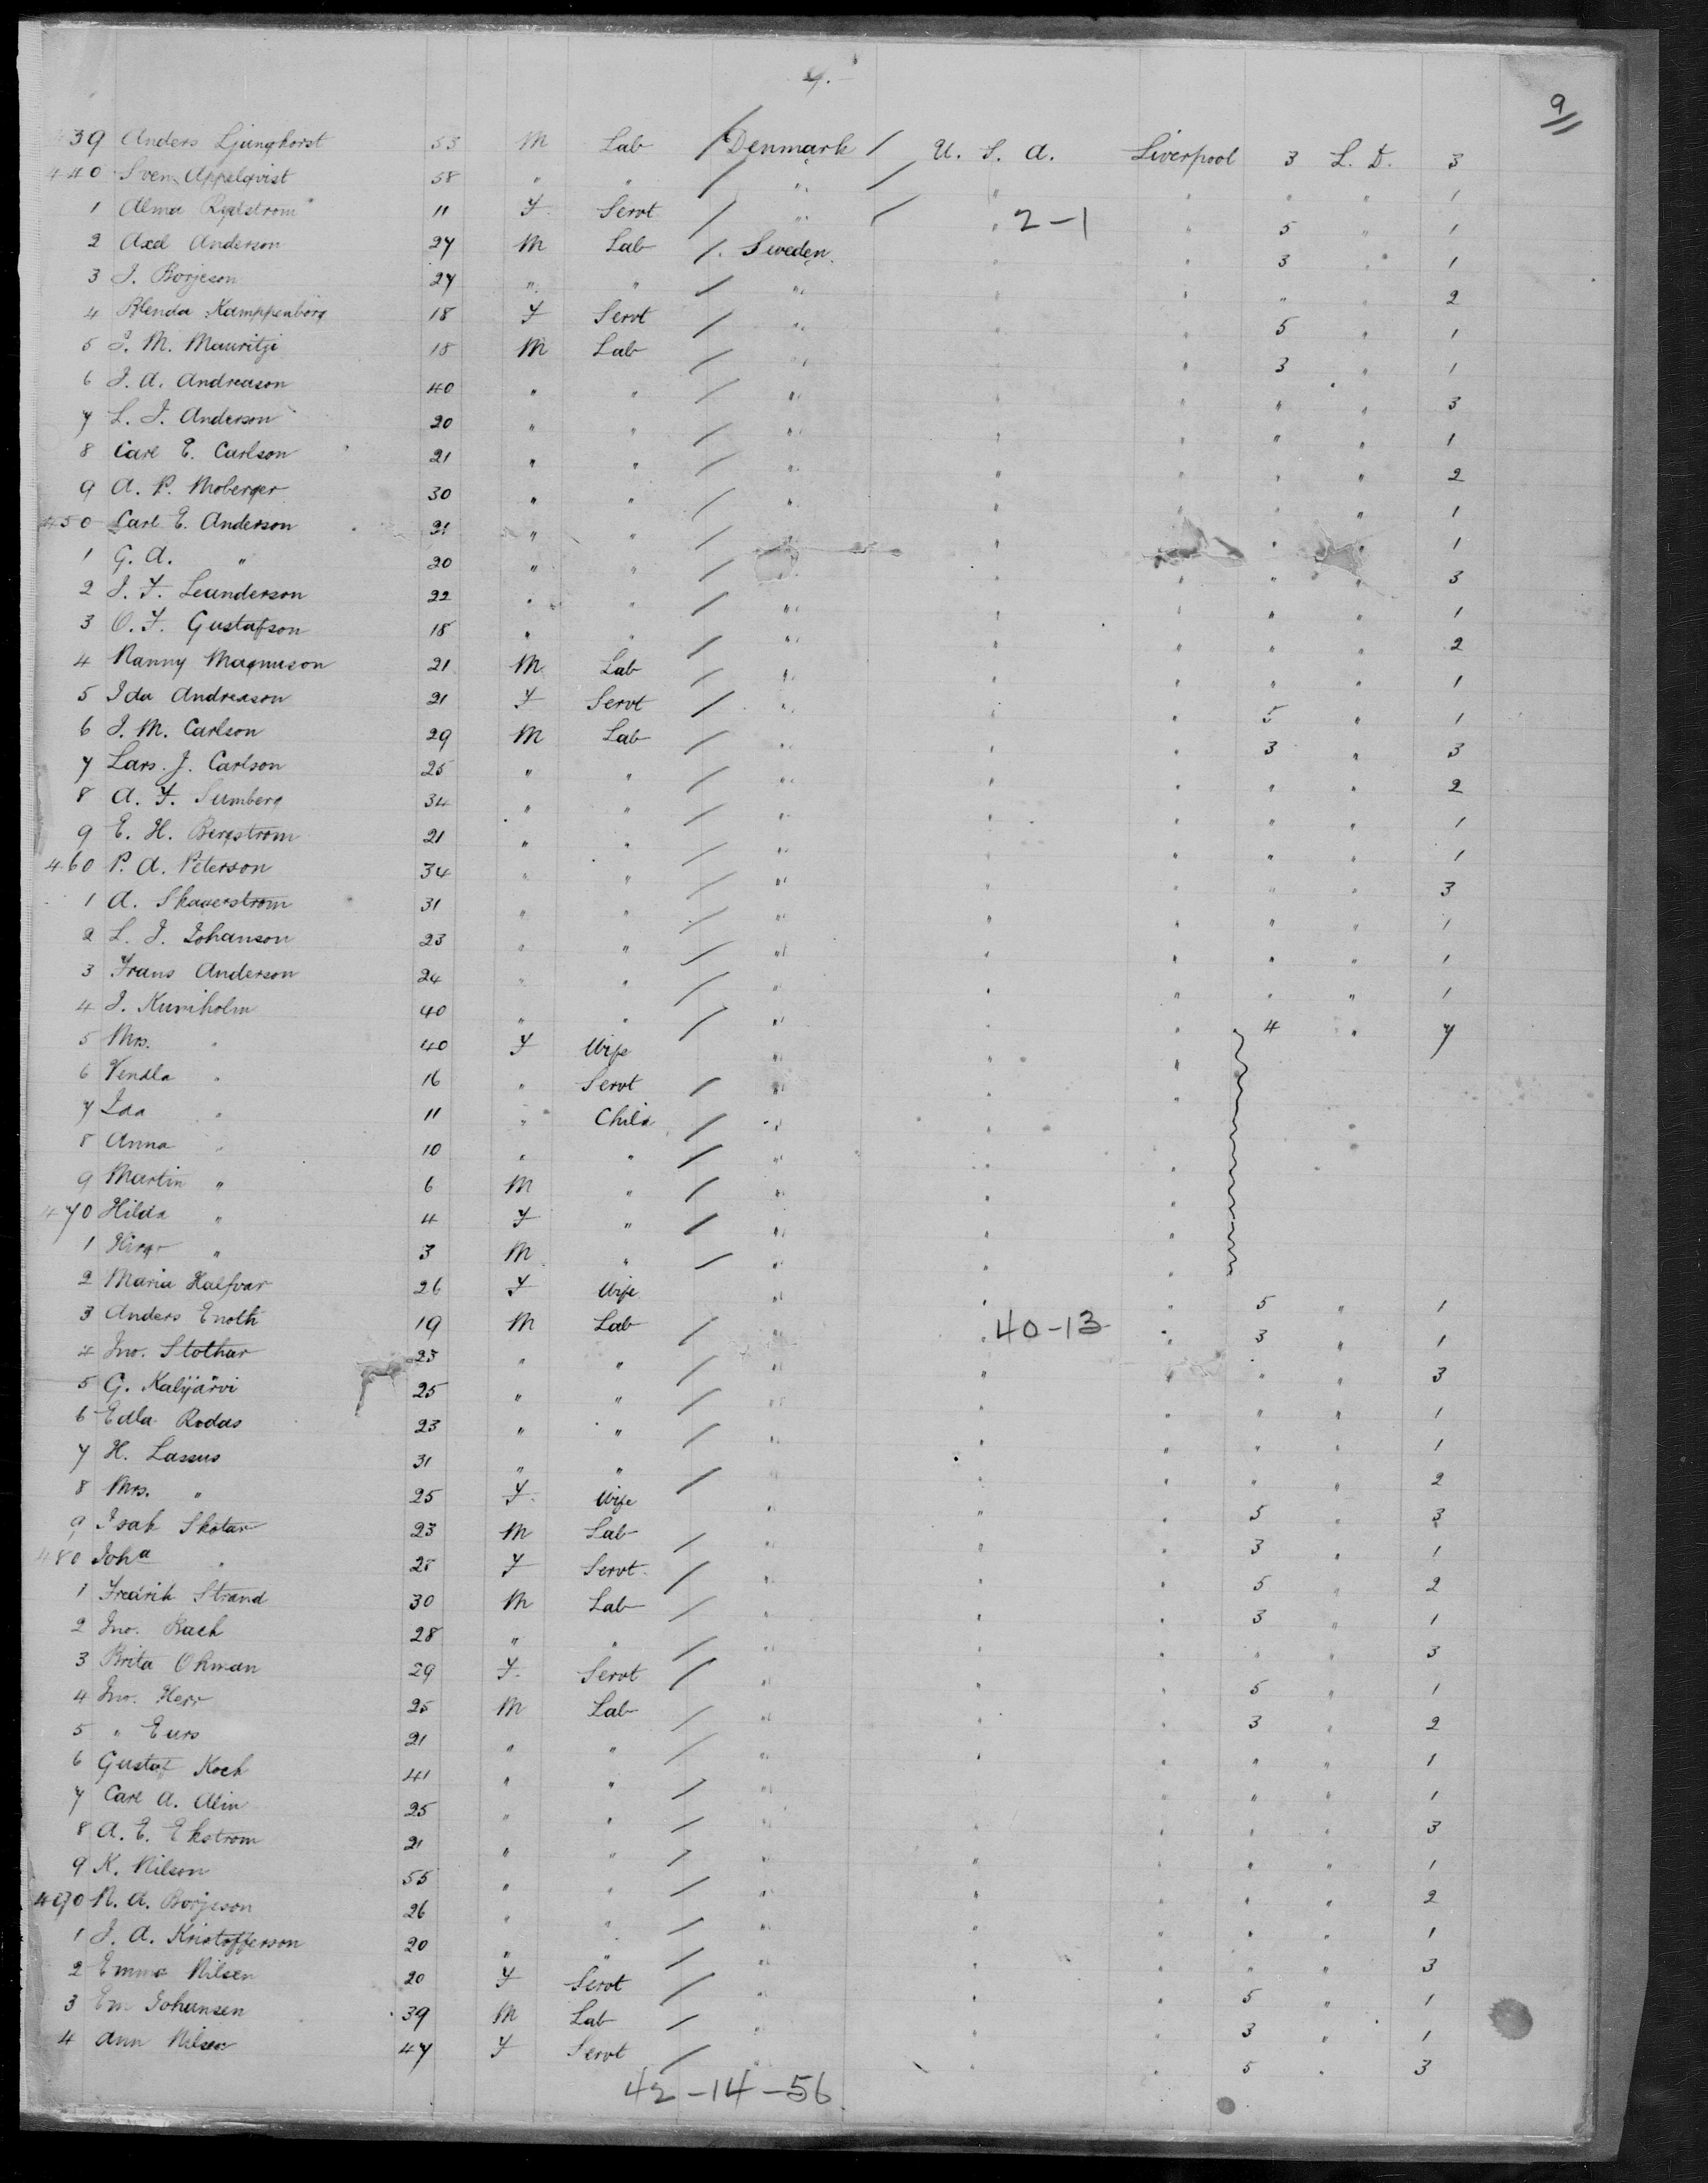 9.
9
439 Anders Ljunghorst 53 M Lab / Denmark / U. S. A. Liverpool 3 L. D. 3
440 Sven Appelqvist 58 " " / " / " " " " 1
1 Alma Rydstrom 11 F Servt / " / " 2-1 " 5 " 1
2 Axel Anderson 27 M Lab / Sweden " " 3 " 1
3 J. Borjeson 27 " " / " " " " " 2
4 Blenda Kamppenborg 18 F Servt / " " " 5 " 1
5 J. M. Mauritji 18 M Lab / " " " 3 " 1
6 J. A. Andreason 40 " " / " " " " " 3
7 L. J. Anderson 20 " " / " " " " " 1
8 Carl E. Carlson 21 " " / " " " " " 2
9 A. P. Moberger 30 " " / " " " " " 1
450 Carl E. Anderson 21 " " / " " " " " 1
1 G. A. " 20 " " / " " " " " 3
2 J. F. Leanderson 22 " " / " " " " " 1
3 O. F. Gustafson 18 " " / " " " " " 2
4 Nanny Magnuson 21 M Lab / " " " " " 1
5 Ida Andreason 21 F Servt / " " " 5 " 1
6 J. M. Carlson 29 M Lab / " " " 3 " 3
7 Lars. J. Carlson 25 " " / " " " " " 2
8 A. F. Sumberg 34 " " / " " " " " 1
9 E. H. Bergstrom 21 " " / " " " " " 1
460 P. A. Peterson 34 " " / " " " " " 3
1 A. Skaverstrom 31 " " / " " " " " 1
2 L. J. Johanson 23 " " / " " " " " 1
3 Frans Anderson 24 " " / " " " " " 1
4 J. Kuniholm 40 " " / " " " 4 " 7
5 Mrs. " 40 F Wife " " "
6 Vendla " 16 " Servt / " " "
7 Ida " 11 " Child / " "
8 Anna " 10 " " / " " "
9 Martin " 6 M " / " " "
470 Hilda " 4 F " / " " "
1 " 3 M " / " " "
2 Maria Halfvar 26 F Wife " " " 5 " 1
3 Anders Enoth 19 M Lab / " " 40-13 " 3 " 1
4 Jno. Stothar 23 " " / " " " " " 3
5 G. Kalijärvi 25 " " / " " " " " 1
6 Edla Rodas 23 " " / " " " " " 1
7 H. Lassus 31 " " / " " " " " 2
8 Mrs. " 25 F Wife " " " 5 " 3
9 Isak Skotar 23 M Lab / " " " 3 " 1
480 Joha " 28 F Servt / " " 5 " 2
1 Fredrik Strand 30 M Lab / " " " 3 " 1
2 Jno. Back 28 " " / " " " " " 3
3 Brita Ohman 29 F Servt / " " " 5 " 1
4 Jno. Herr 25 M Lab / " " " 3 " 2
5 " Eurs 21 " " / " " " " " 1
6 Gustaf Koch 41 " " / " " " " " 1
7 Carl A. Alin 25 " " / " " " " " 3
8 A. E. Ekstrom 21 " " / " " " " " 1
9 K. Nilson 55 " " / " " " " " 2
490 N. A. Borjeson 26 " " / " " " " " 1
1 J. A. Kristofferson 20 " " / " " " " " 3
2 Emma Nilsen 20 F Servt / " " " 5 " 1
3 Em Johansen 39 M Lab / " " " 3 " 1
4 Ann Nilsen 47 F Servt / " " " 5 " 3
42-14-56